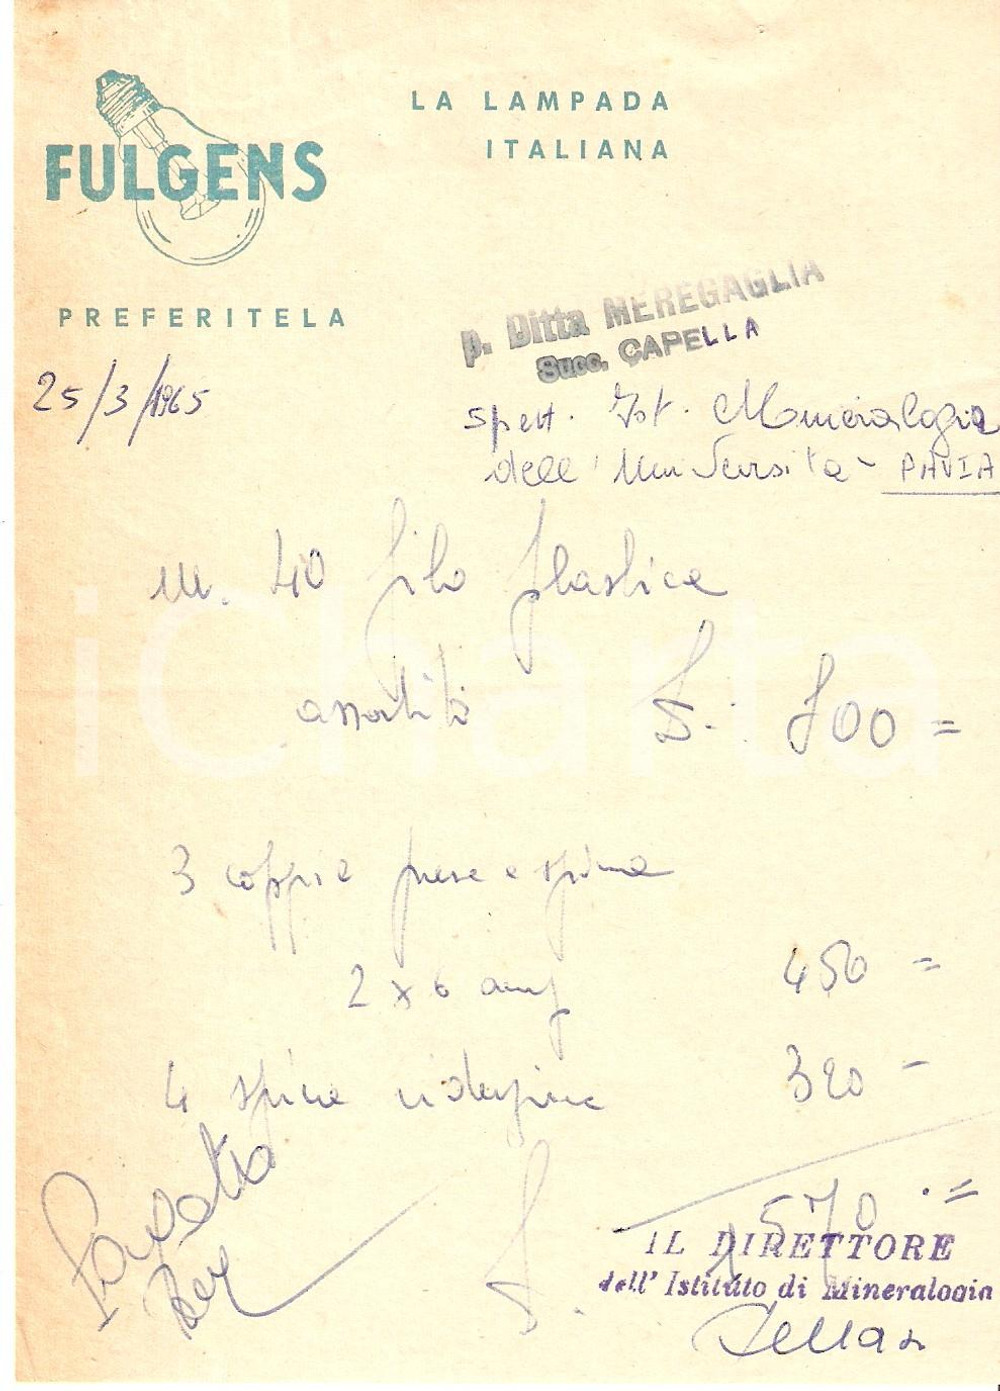 LA LAMPADA
ITALIANA
FULGENS
PREFERITELA
p. Ditta MEREGAGLIA
Succ. CAPELLA
25/3/1965
Spett. Ist. Mineralogia
dell'Università - PAVIA
m. 40 filo plastica
assortito £. 800=
3 coppie prese e spina
2 x 6 amp 450=
4 spine riduzione 320-
1570.=
£.
IL DIRETTORE
dell'Istituto di Mineralogia
iCharta